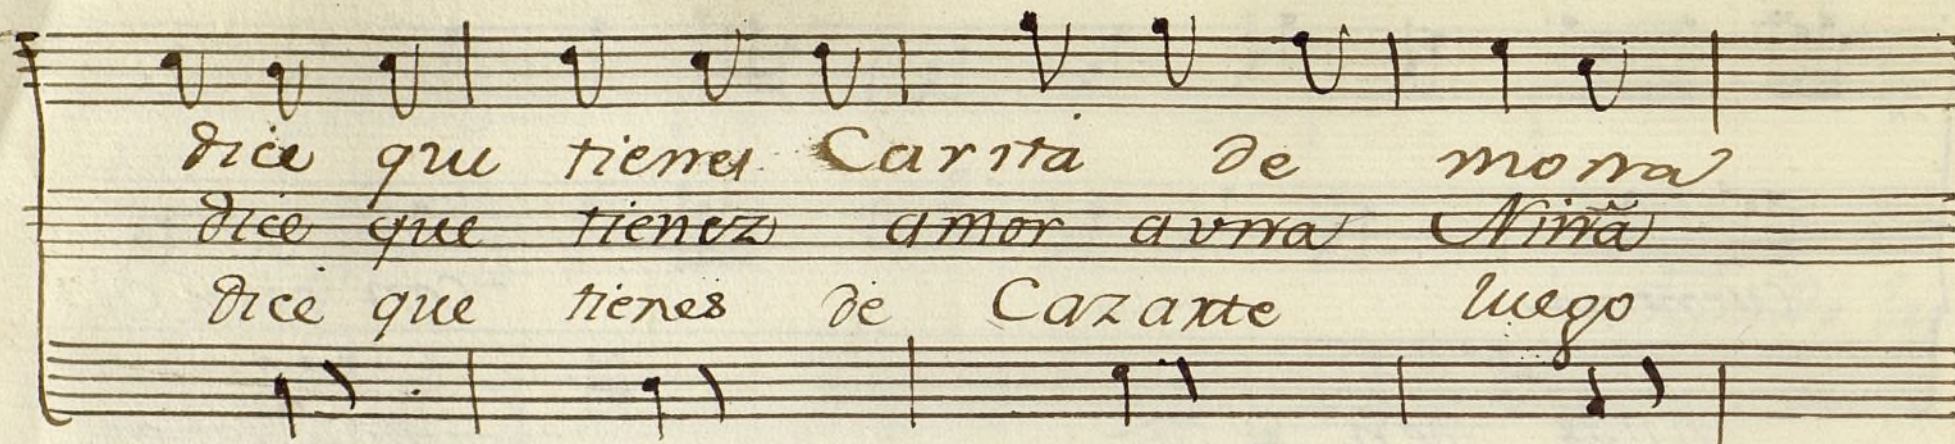 dice que tienes Carita de mona
dice que tienez amor auna Niña
dice que tienes de Cazarte luego